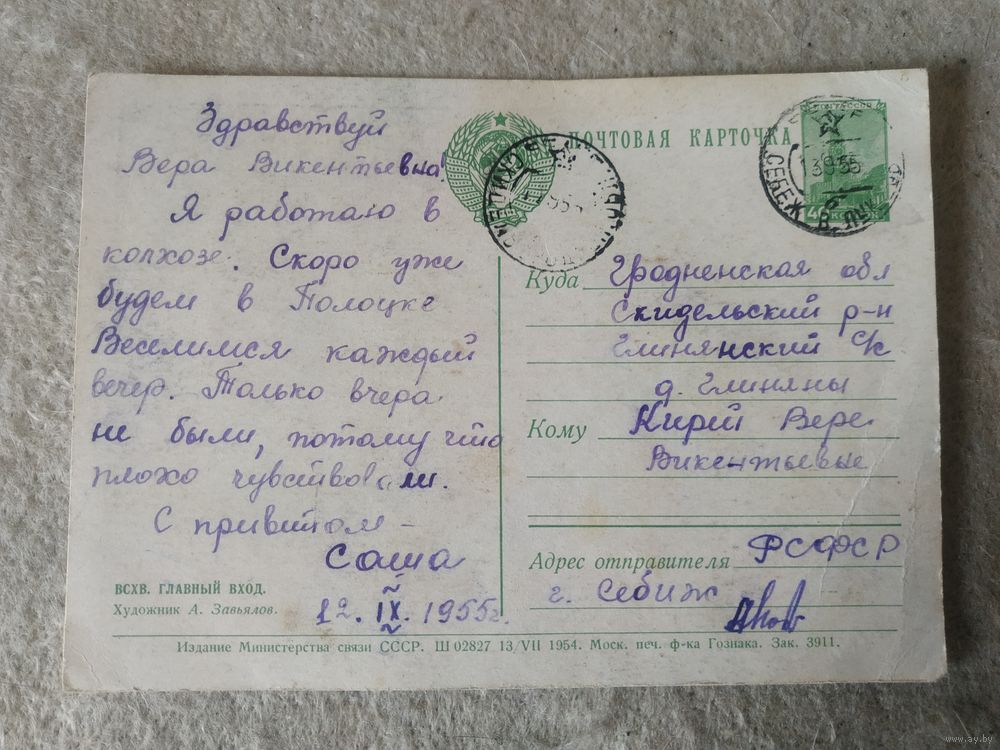 Здравствуй
Вера Викентьевна!
Я работаю в
колхозе. Скоро уже
будем в Полоцке
Веселимся каждый
вечер. Только вчера
не были, потому что
плохо чувствовали.
С привитом –
Саша
12. IX. 1955г.
ВСХВ. ГЛАВНЫЙ ВХОД.
Художник А. Завьялов.
ПОЧТОВАЯ КАРТОЧКА
СЕБЕЖ
Куда Гродненская обл
Скидельский р-н
Глинянский с/с
д. Глиняны
Кому Кирей Вере
Викентьевне
Адрес отправителя РСФСР
г. Себиж
Издание Министерства связи СССР. Ш 02827 13/VII 1954. Моск. печ. ф-ка Гознака. Зак. 3911.
www.ay.by